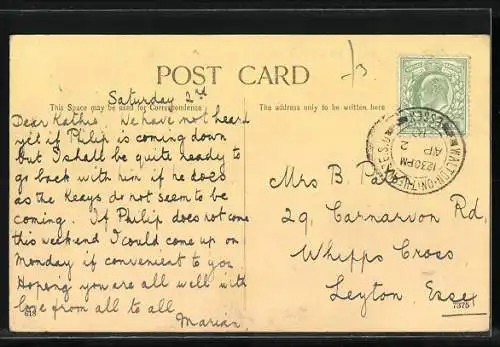 POST CARD
This Space may be used for Correspondence
The address only to be written here
Saturday 2nd
Dear Kathie. We have not heard
yet if Philip is coming down
but I shall be quite ready to
go back with him if he does
as the Keays do not seem to be
coming. If Philip does not come
this weekend I could come up on
Monday if convenient to you.
Hoping you are all well with
love from all to all
Marian.
WALTON-ON-THE-NAZE S.O.
ESSEX
1230PM
2
AP
10
Mrs B.
29. Carnarvon Rd,
Whipps Cross,
Leyton Essex
7375